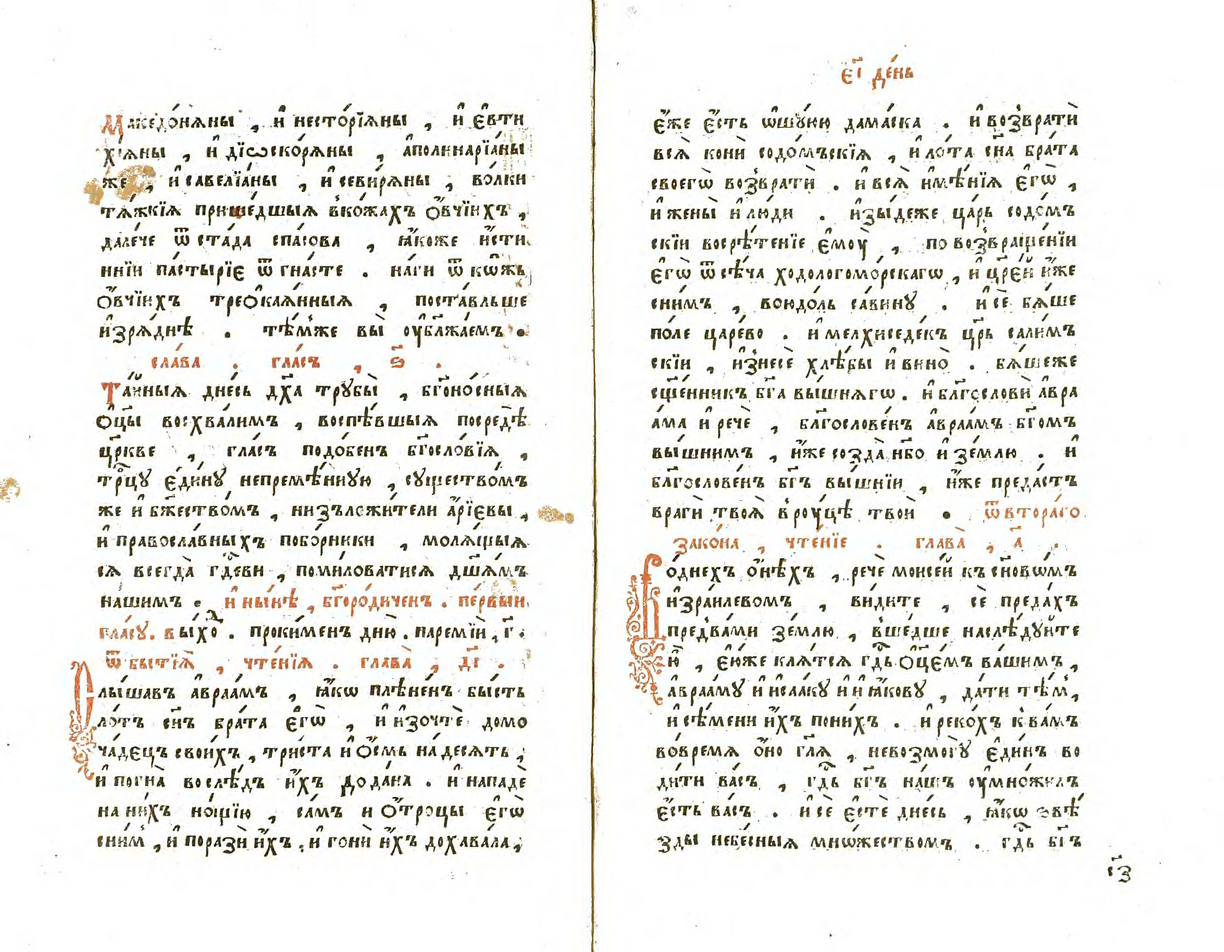 Македо́нѧны , и҆ несторїѧны , и҆ є҆вти
хїѧны , и҆ дїѡскорѧны , а҆полинарїѧны
же , и҆ савелїаны , и҆ севирѧны , во́лки
тѧ́жкїѧ прише́дшыѧ вко́жахъ ѻ҆вчїихъ ,
дале́че ѿ ста́да спа́сова , ꙗ҆́коже и҆́сти
ннїи па́стырїє ѿ гна́сте . на́ги ѿ ко́жъ
ѻ҆вчїихъ треѻкаѧ́нныѧ , поста́вльше
и҆зрѧ́днѣ . тѣ́мже вы̀ ᲂу҆блажа́емъ .
сла́ва . гла́съ , ѕ҃ .
Та́йныѧ дне́сь дх҃а трꙋбы̀ , бг҃оно́сныѧ
ѻ҆ц҃ы восхва́лимъ , воспѣ́вшыѧ посредѣ̀
цр҃кве , гла́съ подо́бенъ бг҃осло́вїѧ ,
трⷪ҇цꙋ є҆ди́нꙋ непремѣ́ннꙋю , сꙋщество́мъ
же и҆ бж҃ество́мъ , низъложи́тели а҆́рїевы ,
и҆ правосла́вныхъ побо́рники , молѧ́щыѧ
сѧ всегда̀ гдⷭ҇еви , поми́ловатисѧ дш҃а́мъ
на́шимъ . и҆ ны́нѣ , бг҃оро́диченъ . пе́рвыи
гла́сꙋ . вы́хоⷣ . проки́менъ дню̀ . паремїи , г҃ .
ѿ бытїѧ̀ , чте́нїѧ . глава̀ , д҃і .
Слы́шавъ а҆враа́мъ , ꙗ҆́кѡ плѣне́нъ бы́сть
ло́тъ сн҃ъ бра́та є҆гѡ̀ , и҆ и҆зочтѐ домо
ча́децъ свои́хъ , три́ста и҆ ѻ҆́смь на́десѧть ,
и҆ погна̀ восле́дъ и҆́хъ до да́на . и҆ нападѐ
на ни́хъ но́щїю , са́мъ и҆ ѻ҆́троцы є҆гѡ̀
сни́мъ , и҆ поразѝ и҆́хъ , и҆ гонѝ и҆́хъ дохава́ла ,
є҃і де́нь
є҆́же є҆́сть ѡ҆шꙋ́юю дама́ска . и҆ возвратѝ
всѧ̀ ко́ни содо́мъскїѧ , и҆ ло́та сн҃а бра́та
своегѡ̀ возвратѝ . и҆ всѧ̀ и҆мѣ́нїѧ є҆гѡ̀ ,
и҆ жены̀ и҆ лю́ди . и҆зы́деже ца́рь содо́мъ
скїи восрѣ́тенїе є҆мᲂу̀ , по возвраще́нїи
є҆гѡ̀ ѿ сѣ́ча ходологомо́рскагѡ , и҆ цр҃ей и҆́же
сни́мъ , воюдо́ль сави́нꙋ . и҆ сѐ бѧ́ше
по́ле царе́во . и҆ мелхиседе́къ цр҃ь сали́мъ
скїи , и҆знесѐ хлѣ́бы и҆ вино̀ . бѧ́шеже
сщ҃е́нникъ бг҃а вы́шнѧгѡ . и҆ благословѝ а҆вра
а́ма и҆ речѐ , благослове́нъ а҆враа́мъ бг҃омъ
вы́шнимъ , и҆́же созда̀ нб҃о и҆ зе́млю . и҆
благослове́нъ бг҃ъ вы́шнїи , и҆́же преда́стъ
врагѝ твоѧ̀ в рᲂу́цѣ твоѝ . ѿ втора́го
зако́на , чте́нїе . глава̀ , а҃ .
Воднехъ ѻ҆́нѣхъ , рече моисе́й къ сн҃ово́мъ
и҆зра́илевомъ , ви́дите , сѐ преда́хъ
пред̾ва́ми зе́млю , вше́дше наслѣ́дꙋйте
ю҆̀ , є҆ю́же клѧ́тсѧ гдⷭ҇ь ѻ҆ц҃е́мъ ва́шимъ ,
а҆враа́мꙋ и҆ и҆саа́кꙋ и҆ и҆ꙗ҆́ковꙋ , да́ти тѣ́м̾ ,
и҆ сѣ́мени и҆́хъ пони́хъ . и҆ реко́хъ к ва́мъ
во́времѧ ѻ҆́но гл҃ѧ , невозмогꙋ̀ є҆ди́нъ во
ди́ти ва́съ , гдⷭ҇ь бг҃ъ на́шъ ᲂу҆мно́жилъ
є҆́сть ва́съ . и҆ сѐ є҆стѐ дне́сь , ꙗ҆́кѡ ѕвѣ́
зды небе́сныѧ мно́жествомъ . гдⷭ҇ь бг҃ъ
з҃і